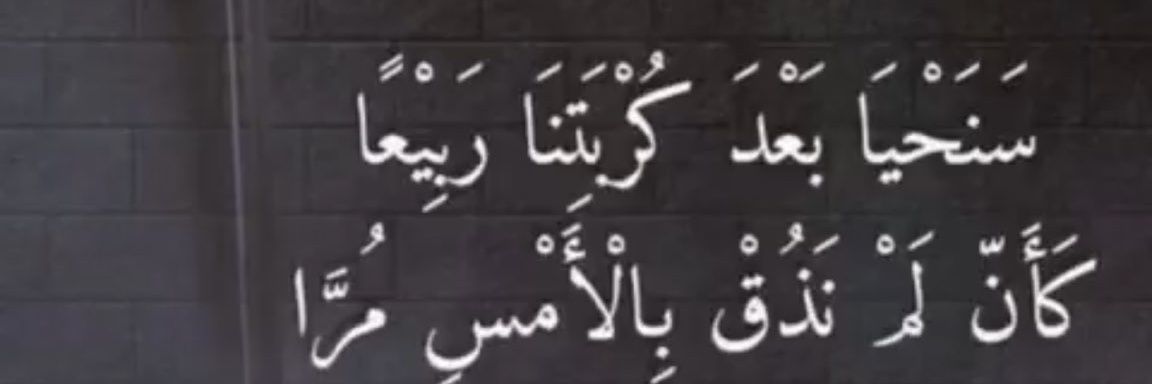 سَنَحْيَا بَعْدَ كُرْبَتِنَا رَبِيْعًا
كَأَنّ لَمْ نَذُقْ بِالْأَمْسِ مُرَّا